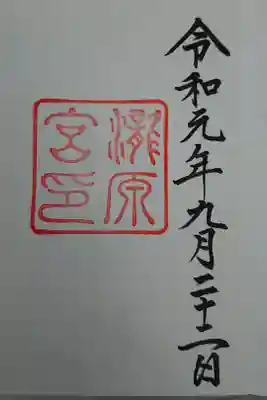 令和元年九月二十二日
瀧原
宮印